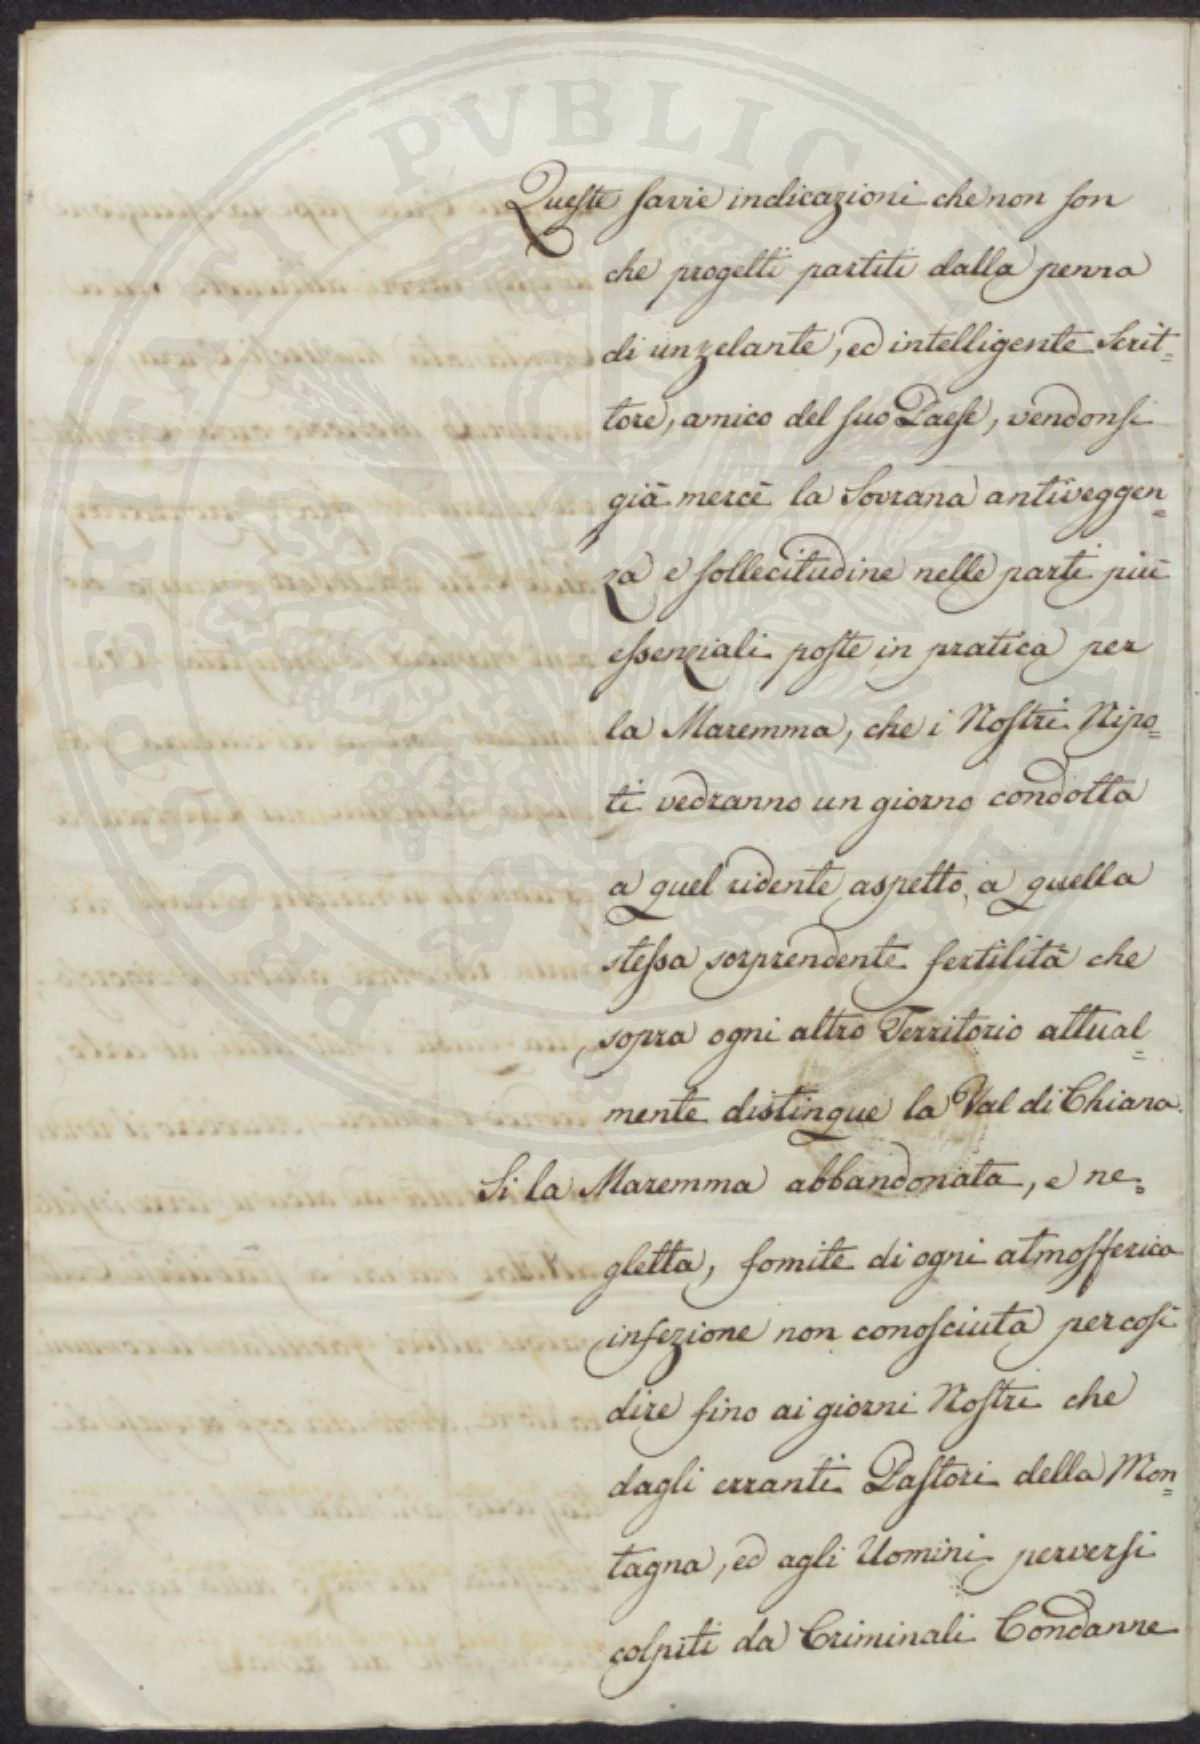 Queste savie indicazioni che non son
che progetti partiti dalla penna
di un zelante, ed intelligente Scrit=
tore, amico del suo Paese, vendonsi
già mercè la Sovrana antiveggen=
za e sollecitudine nelle parti più
essenziali poste in pratica per
la Maremma, che i Nostri Nipo=
ti vedranno un giorno condotta
a quel ridente aspetto, a quella
stessa sorprendente fertilità che
sopra ogni altro Territorio attual=
mente distingue la Val di Chiana.
Si la Maremma abbandonata, e ne=
gletta, fomite di ogni atmosferica
infezione non conosciuta per così
dire fino ai giorni Nostri che
dagli erranti Pastori della Mon=
tagna, ed agli Uomini perversi
colpiti da Criminali Condanne
PROSPERITATI PVBLICAE